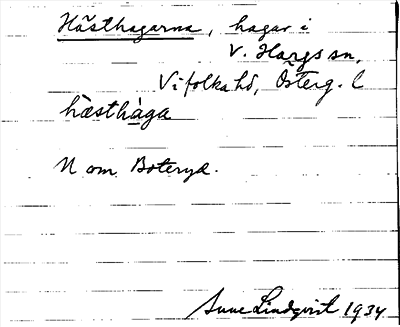 Hästhagarna, hagar i
V. Hargs sn,
Vifolka hd, Österg. l
hästhàga
N om Boteryd.
Sune Lindqvist 1934